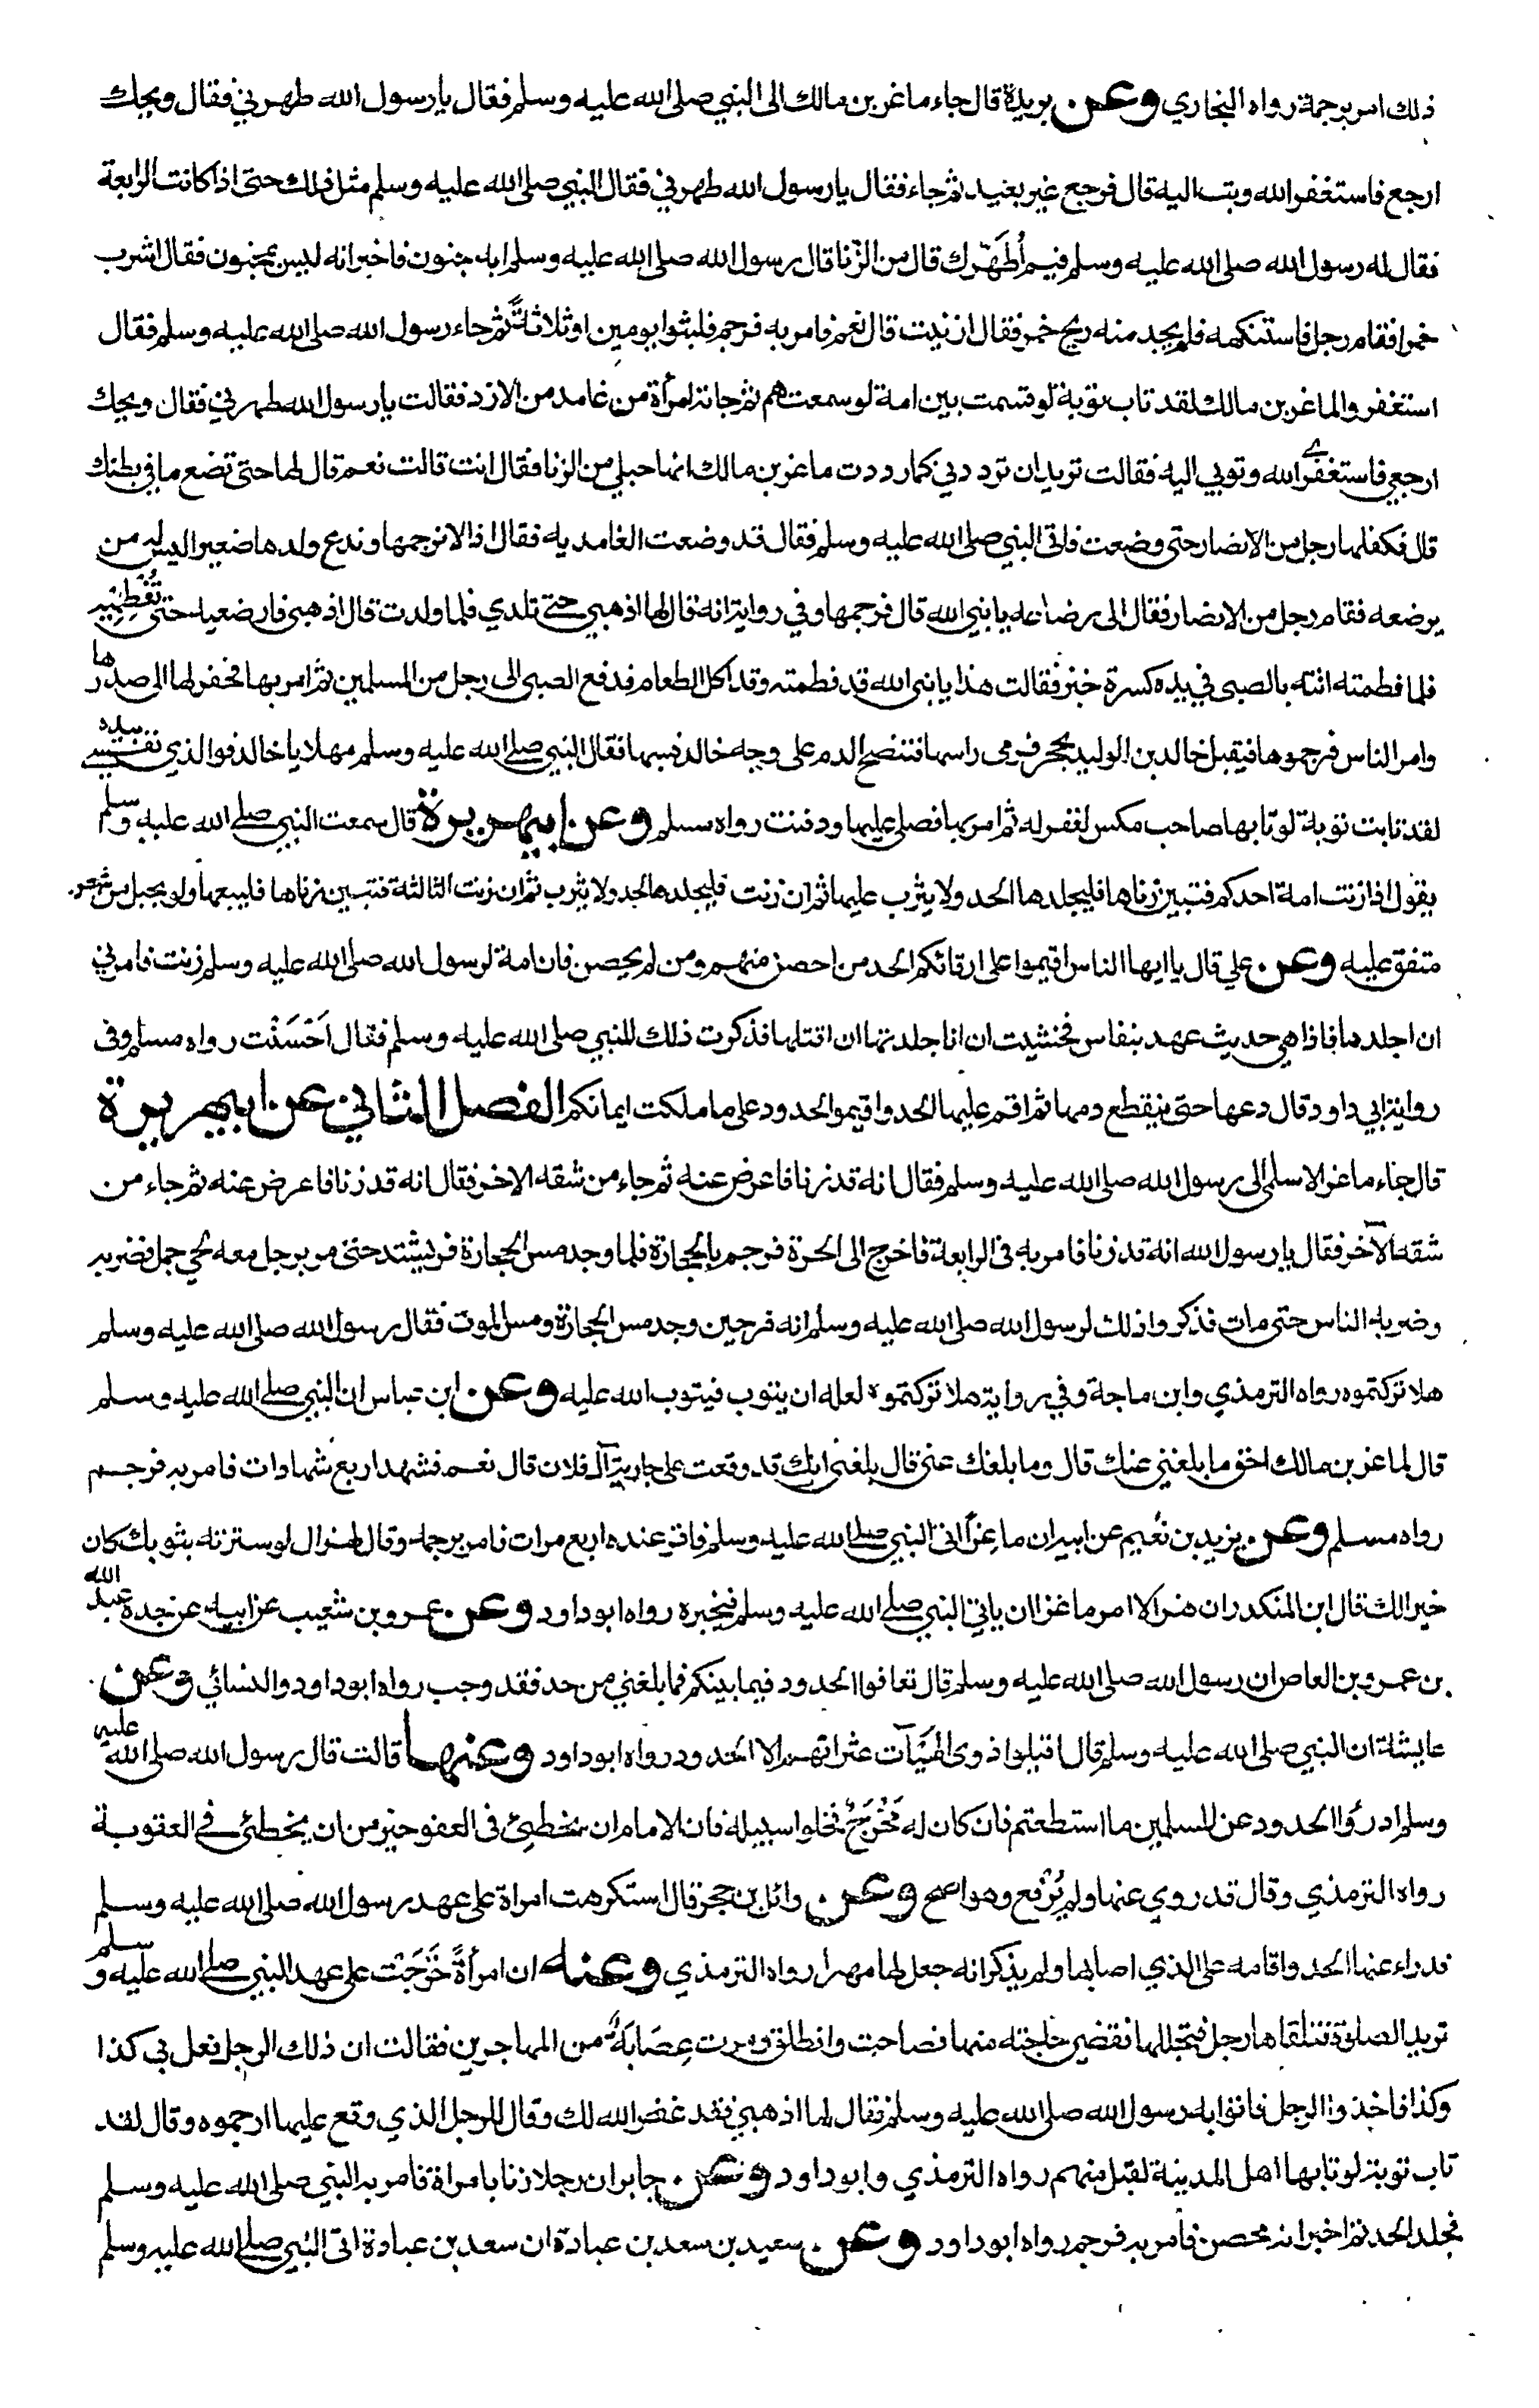 ذلك امر برجمة رواه البخاري وعن بريدة قال جاء ماغر بن مالك الى النبي صلى الله عليه وسلم فقال يا رسول الله طهرني فقال ويحك
ارجع فاستغفر الله وتب اليه قال فرجع غير بعيد ثم جاء فقال يا رسول الله طهرني فقال النبي صلى الله عليه وسلم مثل ذلك حتى اذا كانت الرابعة
فقال له رسول الله صلى الله عليه وسلم فيم أُطَهّرك قال من الزنا قال رسول الله صلى الله عليه وسلم ابه جنون فاخبر انه ليس بمجنون فقال اشرب
خمرا فقام رجل فاستنكهه فلم يجد منه ريح خمر فقال ازنيت قال نعم فامر به فرجم فلبثوا يومين او ثلاثة ثم جاء رسول الله صلى الله عليه وسلم فقال
استغفروا لماغر بن مالك لقد تاب توبة لو قسمت بين امة لوسعتهم ثم جاته امرأة من غامد من الازد فقالت يا رسول الله طهرني فقال ويحك
ارجعي فاستغفري الله وتوبي اليه فقالت تريد ان ترددني كما رددت ماغر بن مالك انها حبلى من الزنا فقال انت قالت نعم قال لها حتى تضع ما في بطنك
قال فكفلها رجل من الانصار حتى وضعت فاتى النبي صلى الله عليه وسلم فقال قد وضعت الغامديه فقال اذا لا نرجمها وندع ولدها صغيرا ليس له من
يرضعه فقام رجل من الانصار فقال الى رضاعه يا نبي الله قال فرجمها وفي رواية انه قال لها اذهبي حتى تلدي فلما ولدت قال اذهبي فارضعيه حتى تُفْطِمِيه
فلما فطمته اتته بالصبي في يده كسرة خبز فقالت هذا يا نبي الله قد فطمته وقد اكل الطعام فدفع الصبي الى رجل من المسلمين ثم امر بها فحفر لها الى صدرها
وامر الناس فرجموها فيقبل خالد بن الوليد بحجر فرمى راسها فتنضح الدم على وجه خالد فسبها فقال النبي صلى الله عليه وسلم مهلا يا خالد فوالذي نفسي بيده
لقد تابت توبة لو تابها صاحب مكس لغفر له ثم امر بها فصلى عليها ودفنت رواه مسلم وعن ابيهريرة قال سمعت النبي صلى الله عليه وسلم
يقول اذا زنت امة احدكم فتبين زناها فليجلدها الحد ولا يثرب عليها ثم ان زنت فليجلدها الحد ولا يثرب ثم ان زنت الثالثة فتبين زناها فليبعها ولو بحبل من شعر
متفق عليه وعن علي قال يا ايها الناس اقيموا على ارقائكم الحد من احصن منهم ومن لم يحصن فان امة لرسول الله صلى الله عليه وسلم زنت فامرني
ان اجلدها فاذا هي حديث عهد بنفاس فخشيت ان انا جلدتها ان اقتلها فذكرت ذلك للنبي صلى الله عليه وسلم فقال اَحْسَنْت رواه مسلم وفى
رواية ابي داود قال دعها حتى ينقطع دمها ثم اقم عليها الحد واقيمو الحدود على ما ملكت ايمانكم الفصل الثاني عن ابيهريرة
قال جاء ماغر الاسلمي الى رسول الله صلى الله عليه وسلم فقال انه قد زنا فاعرض عنه ثم جاء من شقه الاخر فقال انه قد زنا فاعرض عنه ثم جاء من
شقه الآخر فقال يا رسول الله انه قد زنا فامر به فى الرابعة فاخرج الى الحرة فرجم بالحجارة فلما وجد مس الحجارة فر يشتد حتى مر برجل معه لحي جمل فضربه
وضربه الناس حتى مات فذكروا ذلك لرسول الله صلى الله عليه وسلم انه فر حين وجد مس الحجارة ومس الموت فقال رسول الله صلى الله عليه وسلم
هلا تركتموه رواه الترمذي وابن ماجة وفي رواية هلا تركتموه لعله ان يتوب فيتوب الله عليه وعن ابن عباس ان النبي صلى الله عليه وسلم
قال لماغر بن مالك احق ما بلغني عنك قال وما بلغك عني قال بلغني انك قد وقعت على جارية آل فلان قال نعم فشهد اربع شهادات فامر به فرجم
رواه مسلم وعن يزيد بن نُعيم عن ابيه ان ماغرًا اتى النبي صلى الله عليه وسلم فاقر عنده اربع مرات فامر برجمه وقال لهزال لو سترته بثوبك كان
خيرا لك قال ابن المنكدر ان هزالا امر ماغرا ان ياتي النبي صلى الله عليه وسلم فيخبره رواه ابو داود وعن عمرو بن شعيب عن ابيه عن جده عبد الله
بن عمرو بن العاص ان رسول الله صلى الله عليه وسلم قال تعافوا الحدود فيما بينكم فما بلغني من حد فقد وجب رواه ابو داود والنسائي وعن
عايشة ان النبي صلى الله عليه وسلم قال اقيلوا ذوى الهَيَآت عثراتهم الا الحدود رواه ابو داود وعنها قالت قال رسول الله صلى الله عليه
وسلم ادرؤا الحدود عن المسلمين ما استطعتم فان كان له مَخْرَجٌ فخلوا سبيله فان الامام ان يخطئ فى العفو خير من ان يخطئ في العقوبة
رواه الترمذي وقال قد روي عنها ولم يُرْفع وهو اصح وعن وائل بن حجر قال استكرهت امراة على عهد رسول الله صلى الله عليه وسلم
فدراء عنها الحد واقامه على الذي اصابها ولم يذكر انه جعل لها مهرا رواه الترمذي وعنه ان امرأةً خَرَجَتْ على عهد النبي صلى الله عليه وسلم
تريد الصلوة فتلقاها رجل فتجللها فقضى حاجته منها فصاحت وانطلق ومرت عِصَابَةٌ من المهاجرين فقالت ان ذلك الرجل فعل بي كذا
وكذا فاخذوا الرجل فاتوا به رسول الله صلى الله عليه وسلم فقال لها اذهبي فقد غفر الله لك وقال للرجل الذي وقع عليها ارجموه وقال لقد
تاب توبة لو تابها اهل المدينة لقبل منهم رواه الترمذي وابو داود وعن جابر ان رجلا زنا بامراة فامر به النبي صلى الله عليه وسلم
فجلد الحد ثم اخبر انه محصن فأمر به فرجم رواه ابو داود وعن سعيد بن سعد بن عبادة ان سعد بن عبادة اتى النبي صلى الله عليه وسلم